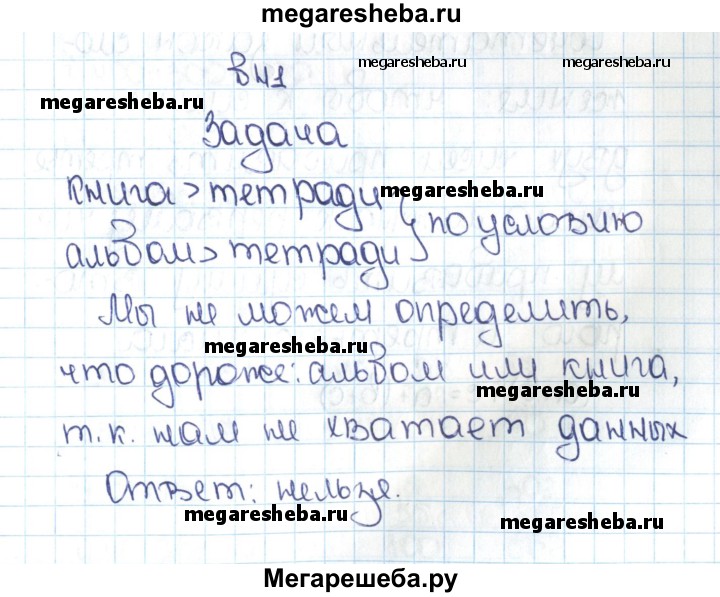 megaresheba.ru
ВЧ1
megaresheba.ru megaresheba.ru
megaresheba.ru
Задача
книга > тетради
megaresheba.ru
альбом > тетради } по условию
Мы не можем определить,
megaresheba.ru
что дороже: альбом или книга,
megaresheba.ru
т.к. нам не хватает данных
Ответ: нельзя.
megaresheba.ru
megaresheba.ru
Мегарешеба.ру